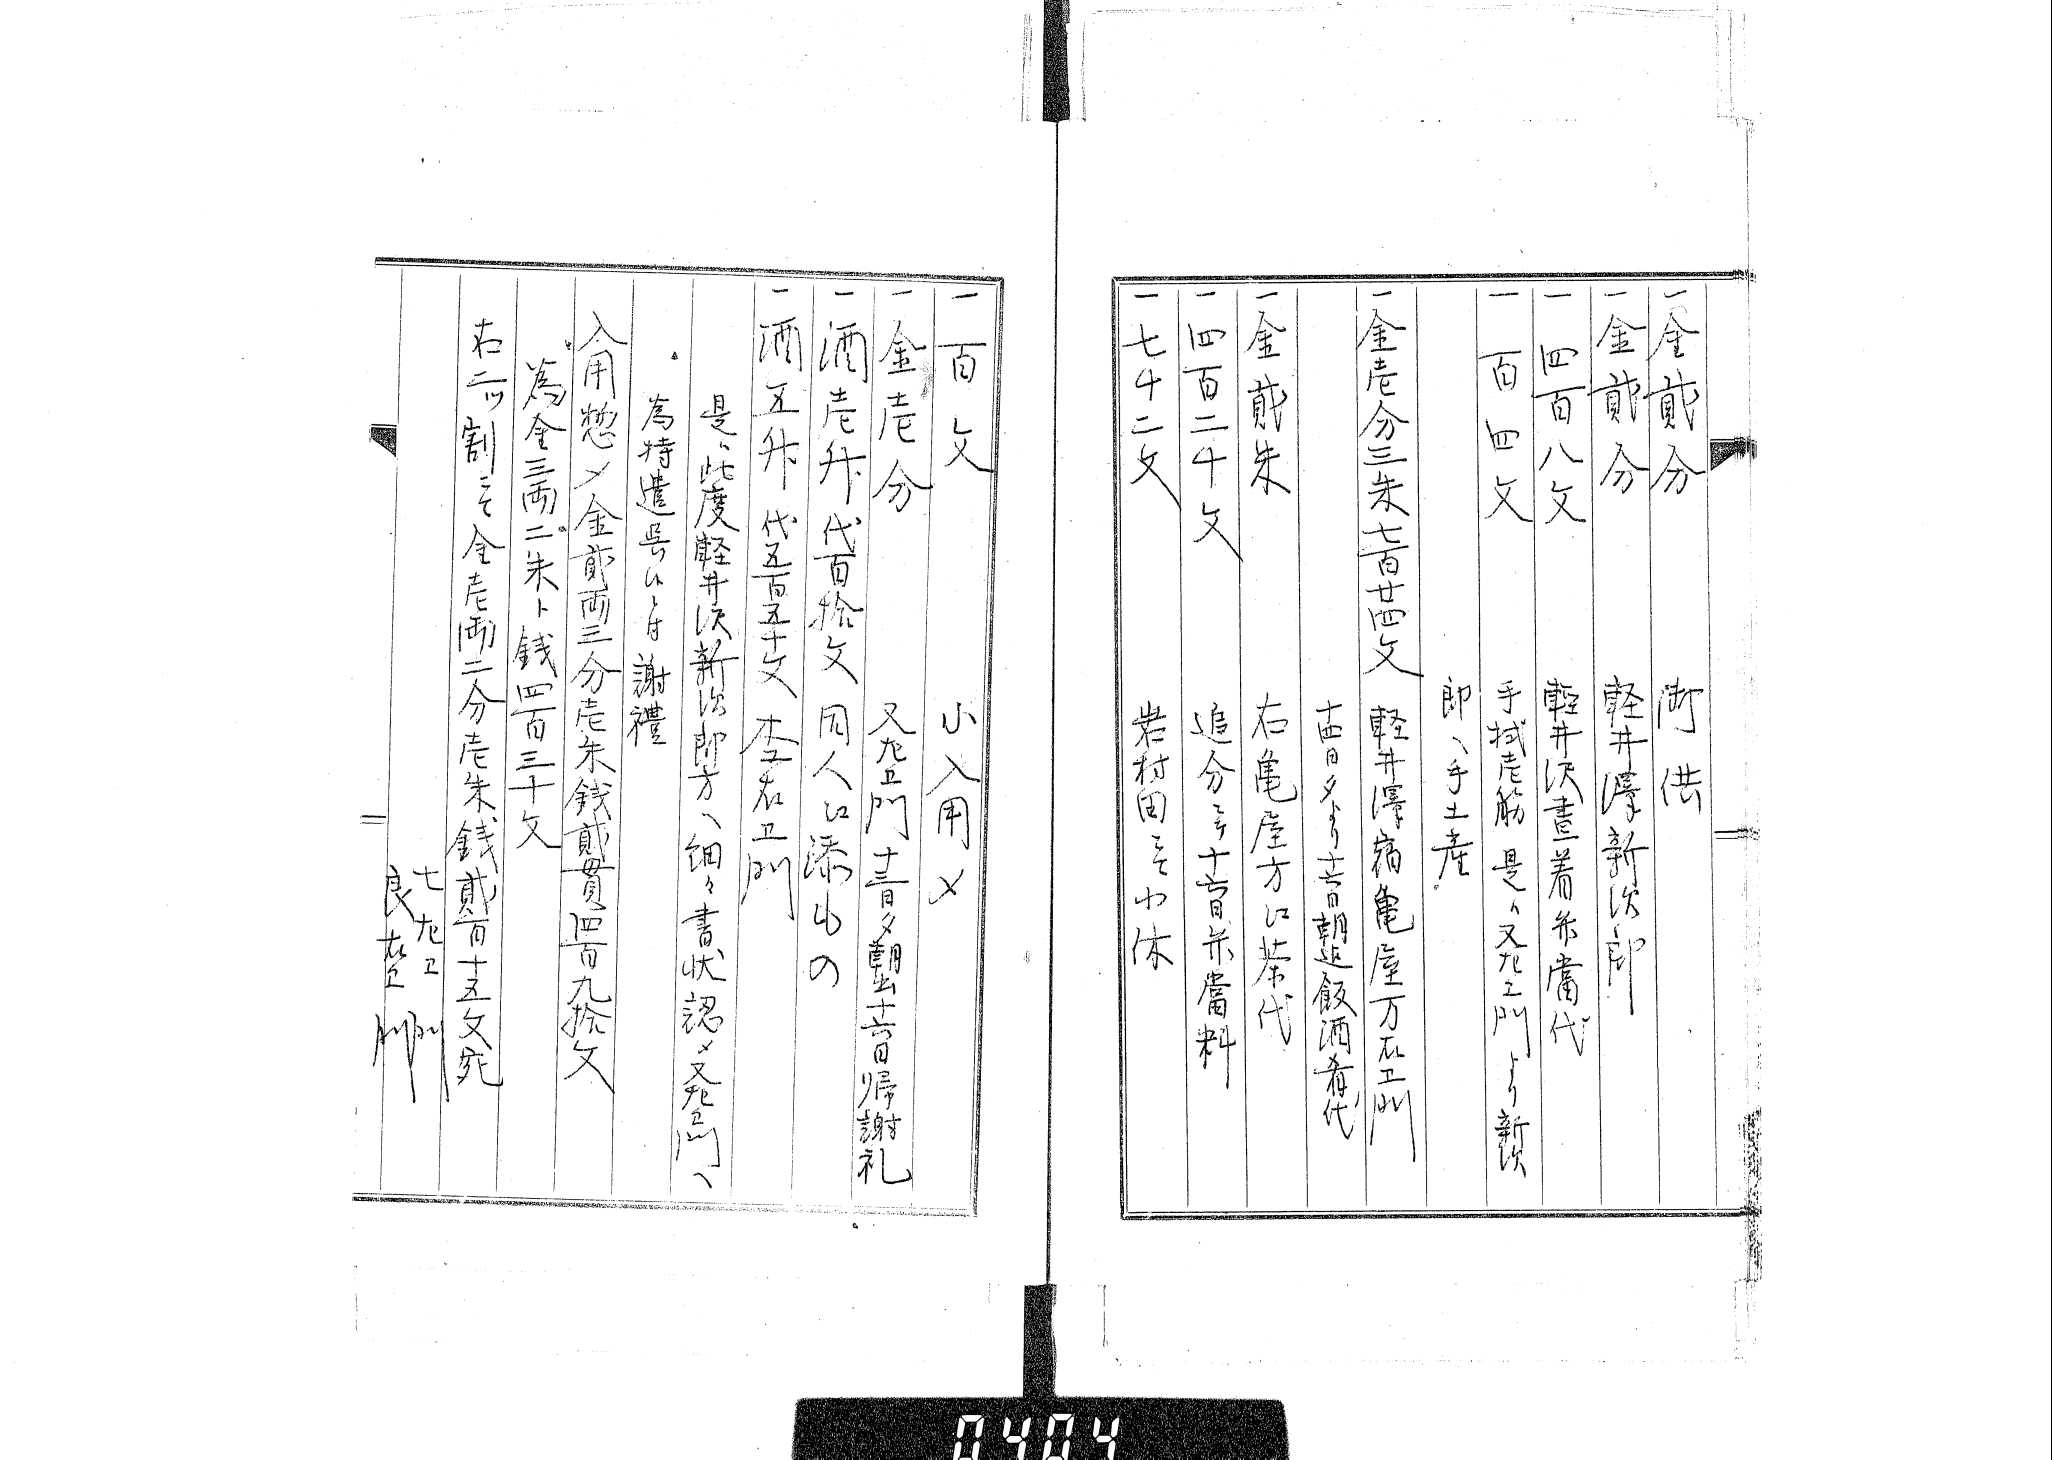 一金貮分　御供
一金貮分　軽井澤新次郎
一四百八文　軽井沢晝着弁當代
一百四文　手拭壱筋　是ハ又左エ門より新次
郎へ手土産
一金壱分三朱七百廿四文　軽井澤宿亀屋万右エ門
十四日夕より十六日朝迄飯酒肴代
一金貮朱　右亀屋方江茶代
一四百二十文　追分ニテ十六日弁當料
一七十二文　岩村田ニて小休
一百文　小入用〆
一金壱分　又左エ門十三日夕朝出十六日帰謝礼
一酒壱升　代百拾文　同人江添もの
一酒五升　代五百五十文　杢右エ門
是ハ此度軽井沢新次郎方へ細々書状認〆又左エ門へ
為持遣呉候ニ付謝禮
入用惣〆金貮両三分壱朱銭貮貫四百九拾文
為金三両二朱ト銭四百三十文
右二ツ割ニて金壱両二分壱朱銭貮百十五文宛
七左エ門
良右エ門
0404